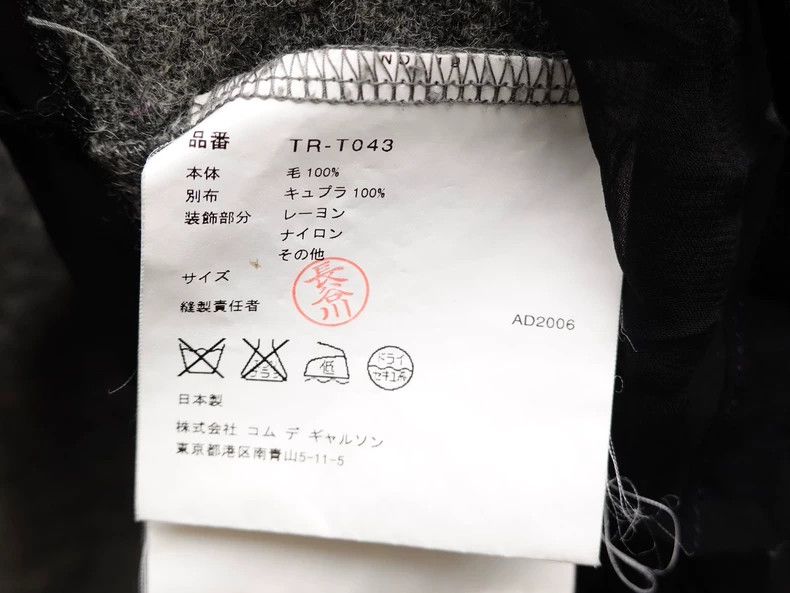 品番 TR-T043
本体 毛 100%
別布 キュプラ 100%
装飾部分 レーヨン
ナイロン
その他
サイズ
縫製責任者 長谷川
AD2006
低
ドライ
セキユ系
日本製
株式会社 コム デ ギャルソン
東京都港区南青山5-11-5